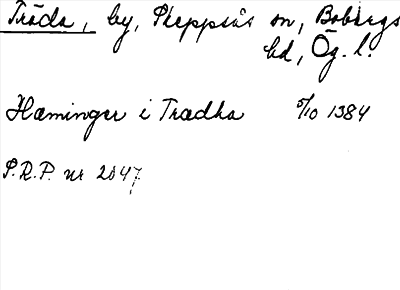 Träda, by, Skeppsås sn, Bobergs
hd, Ög. l.
Hæminger i Trædha 5/10 1384
S.R.P. nr 2047